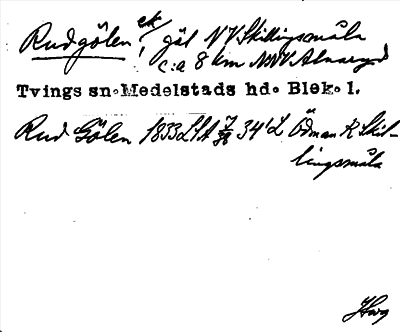 Rudgölen ek
!, göl NV Skillingsmåla
c:a 8 km NNV Alnaryd
Tvings sn. Medelstads hd. Blek. l.
Rud Gölen 1833 LSA 34'L Ödman R Skil-
lingsmåla